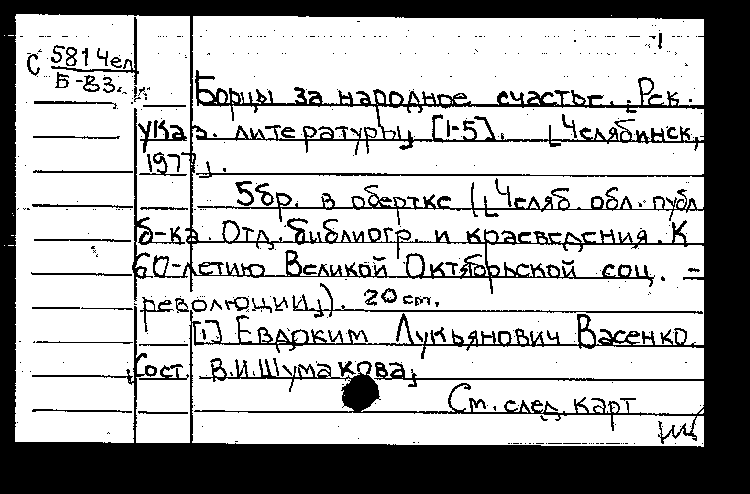 1
С 581Чел
Б-83.
Борцы за народное счастье. ⌊Рек.
указ. литературы⌋ [1-5]. ⌊Челябинск,
1977⌋.
5бр. в обертке (⌊Челяб. обл. публ
б-ка. Отд. библиогр. и краеведения. К
60-летию Великой Октябрьской соц. -
революции⌋). 20 см.
[1] Евдоким Лукьянович Васенко.
⌊Сост. В.И.Шумакова⌋
См. след. карт